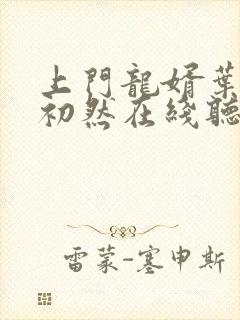 上門龍婿葉
初然在綫聽
雷蒙-塞申斯